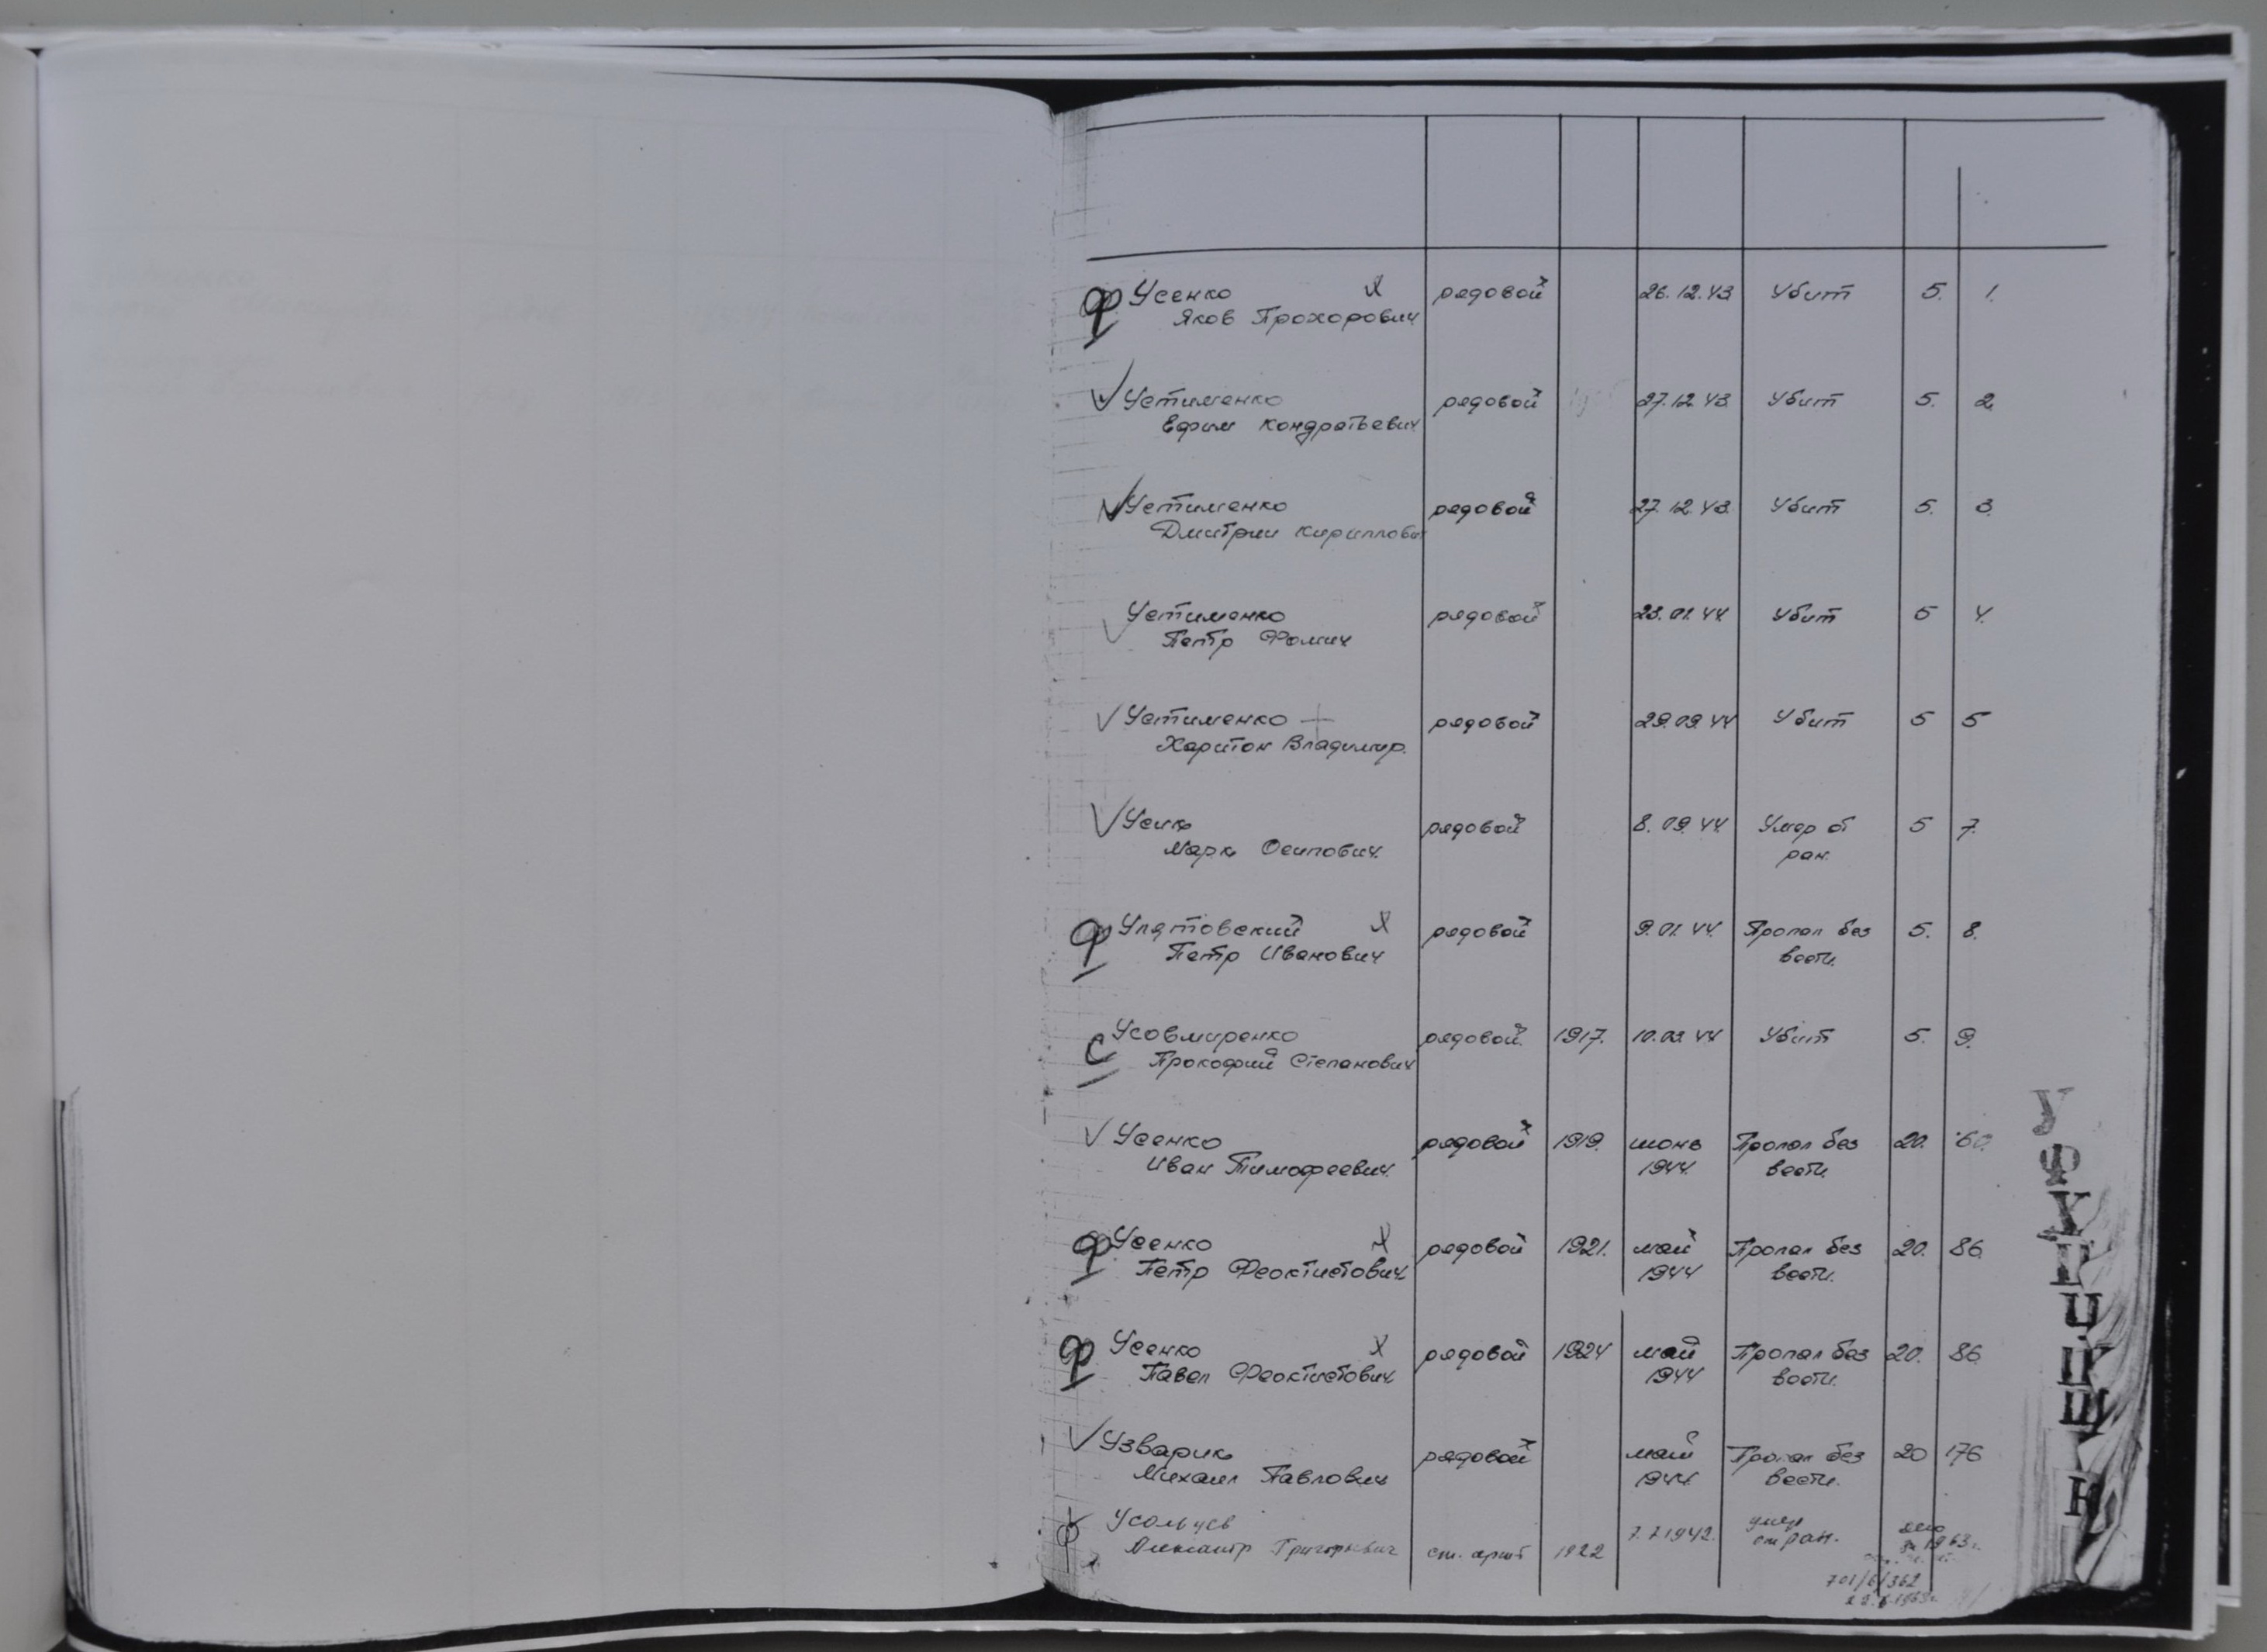 ф Усенко х рядовой 26.12.43 Убит 5. 1.
Яков Прохорович
Устименко рядовой 27.12.43 Убит 5. 2.
Ефим Кондратьевич
Устименко рядовой 27.12.43 Убит 5. 3.
Дмитрии Кириллович
Устименко рядовой 23.01.44 Убит 5 4.
Петр Фомич
Устименко + рядовой 29.09.44 Убит 5 5
Харитон Владимир.
Усик рядовой 8.09.44 Умер от 5 7.
Марк Осипович ран.
ф Улятовский х рядовой 9.01.44. Пропал без 5. 8.
Петр Иванович вести.
с Усовмиренко рядовой 1917. 10.03.44 Убит 5. 9.
Прокофий Степанович
Усенко рядовой 1919. июнь Пропал без 20. 60.
Иван Тимофеевич 1944. вести.
ф Усенко х рядовой 1921. май Пропал без 20. 86.
Петр Феоктистович 1944 вести.
ф Усенко х рядовой 1924 май Пропал без 20. 86
Павел Феоктистович 1944 вести.
Узварик рядовой май Пропал без 20 176
Михаил Павлович 1944 вести.
ф Усольцев 7.7.1942. умер
Александр Григорьевич 1922 от ран. 1963г.
701/6/362
У
Ф
Х
Ц
Ш